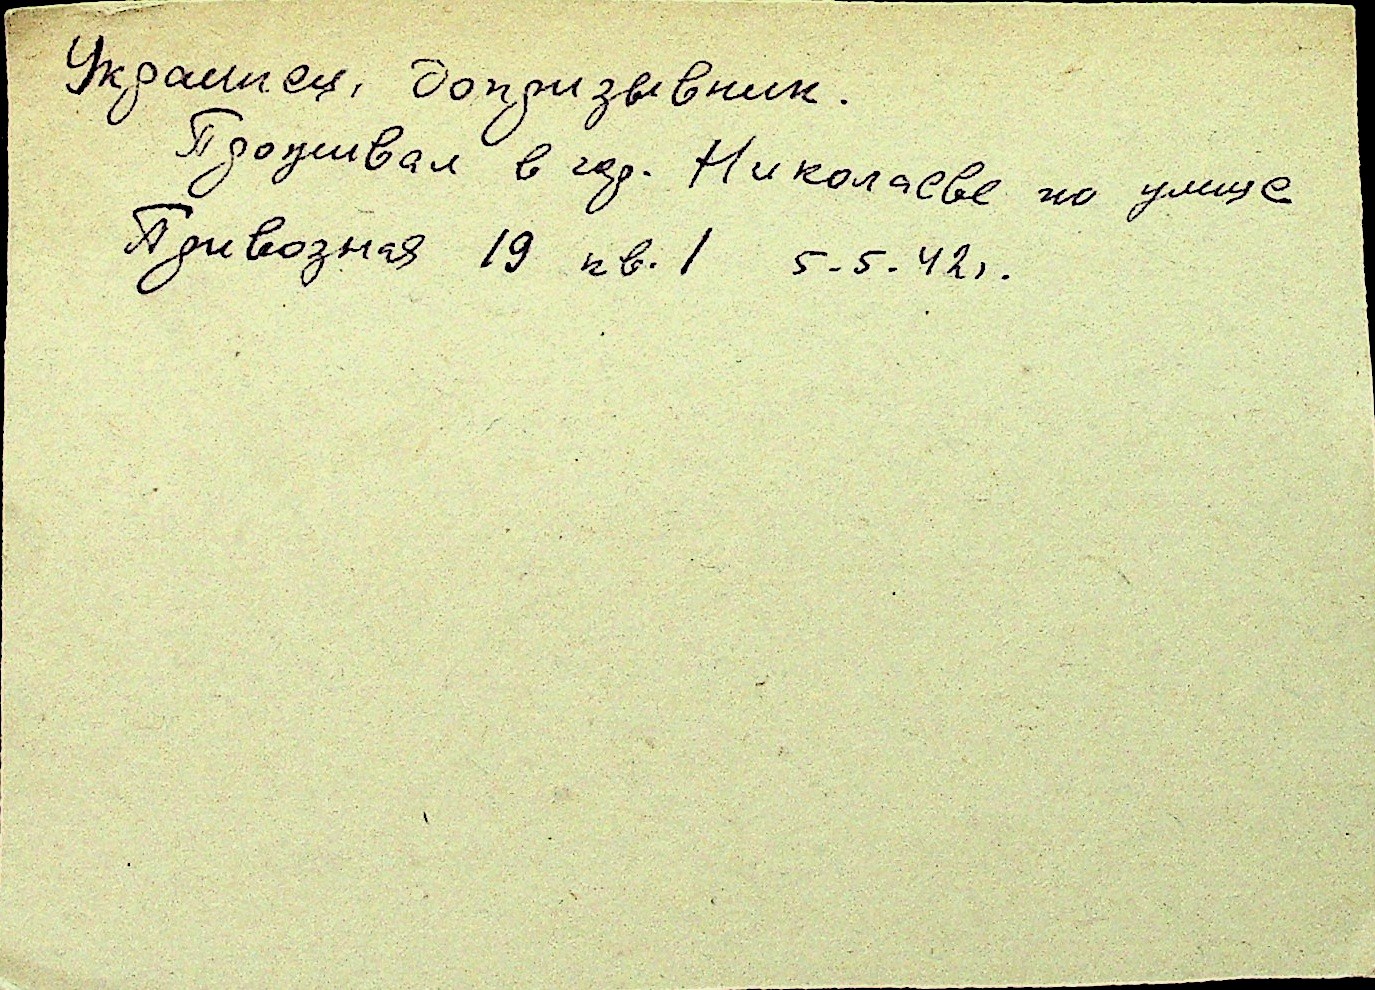 Украинец, допризывник.
Проживал в гор. Николаеве по улице
Привозная 19 кв. 1 5-5-42г.